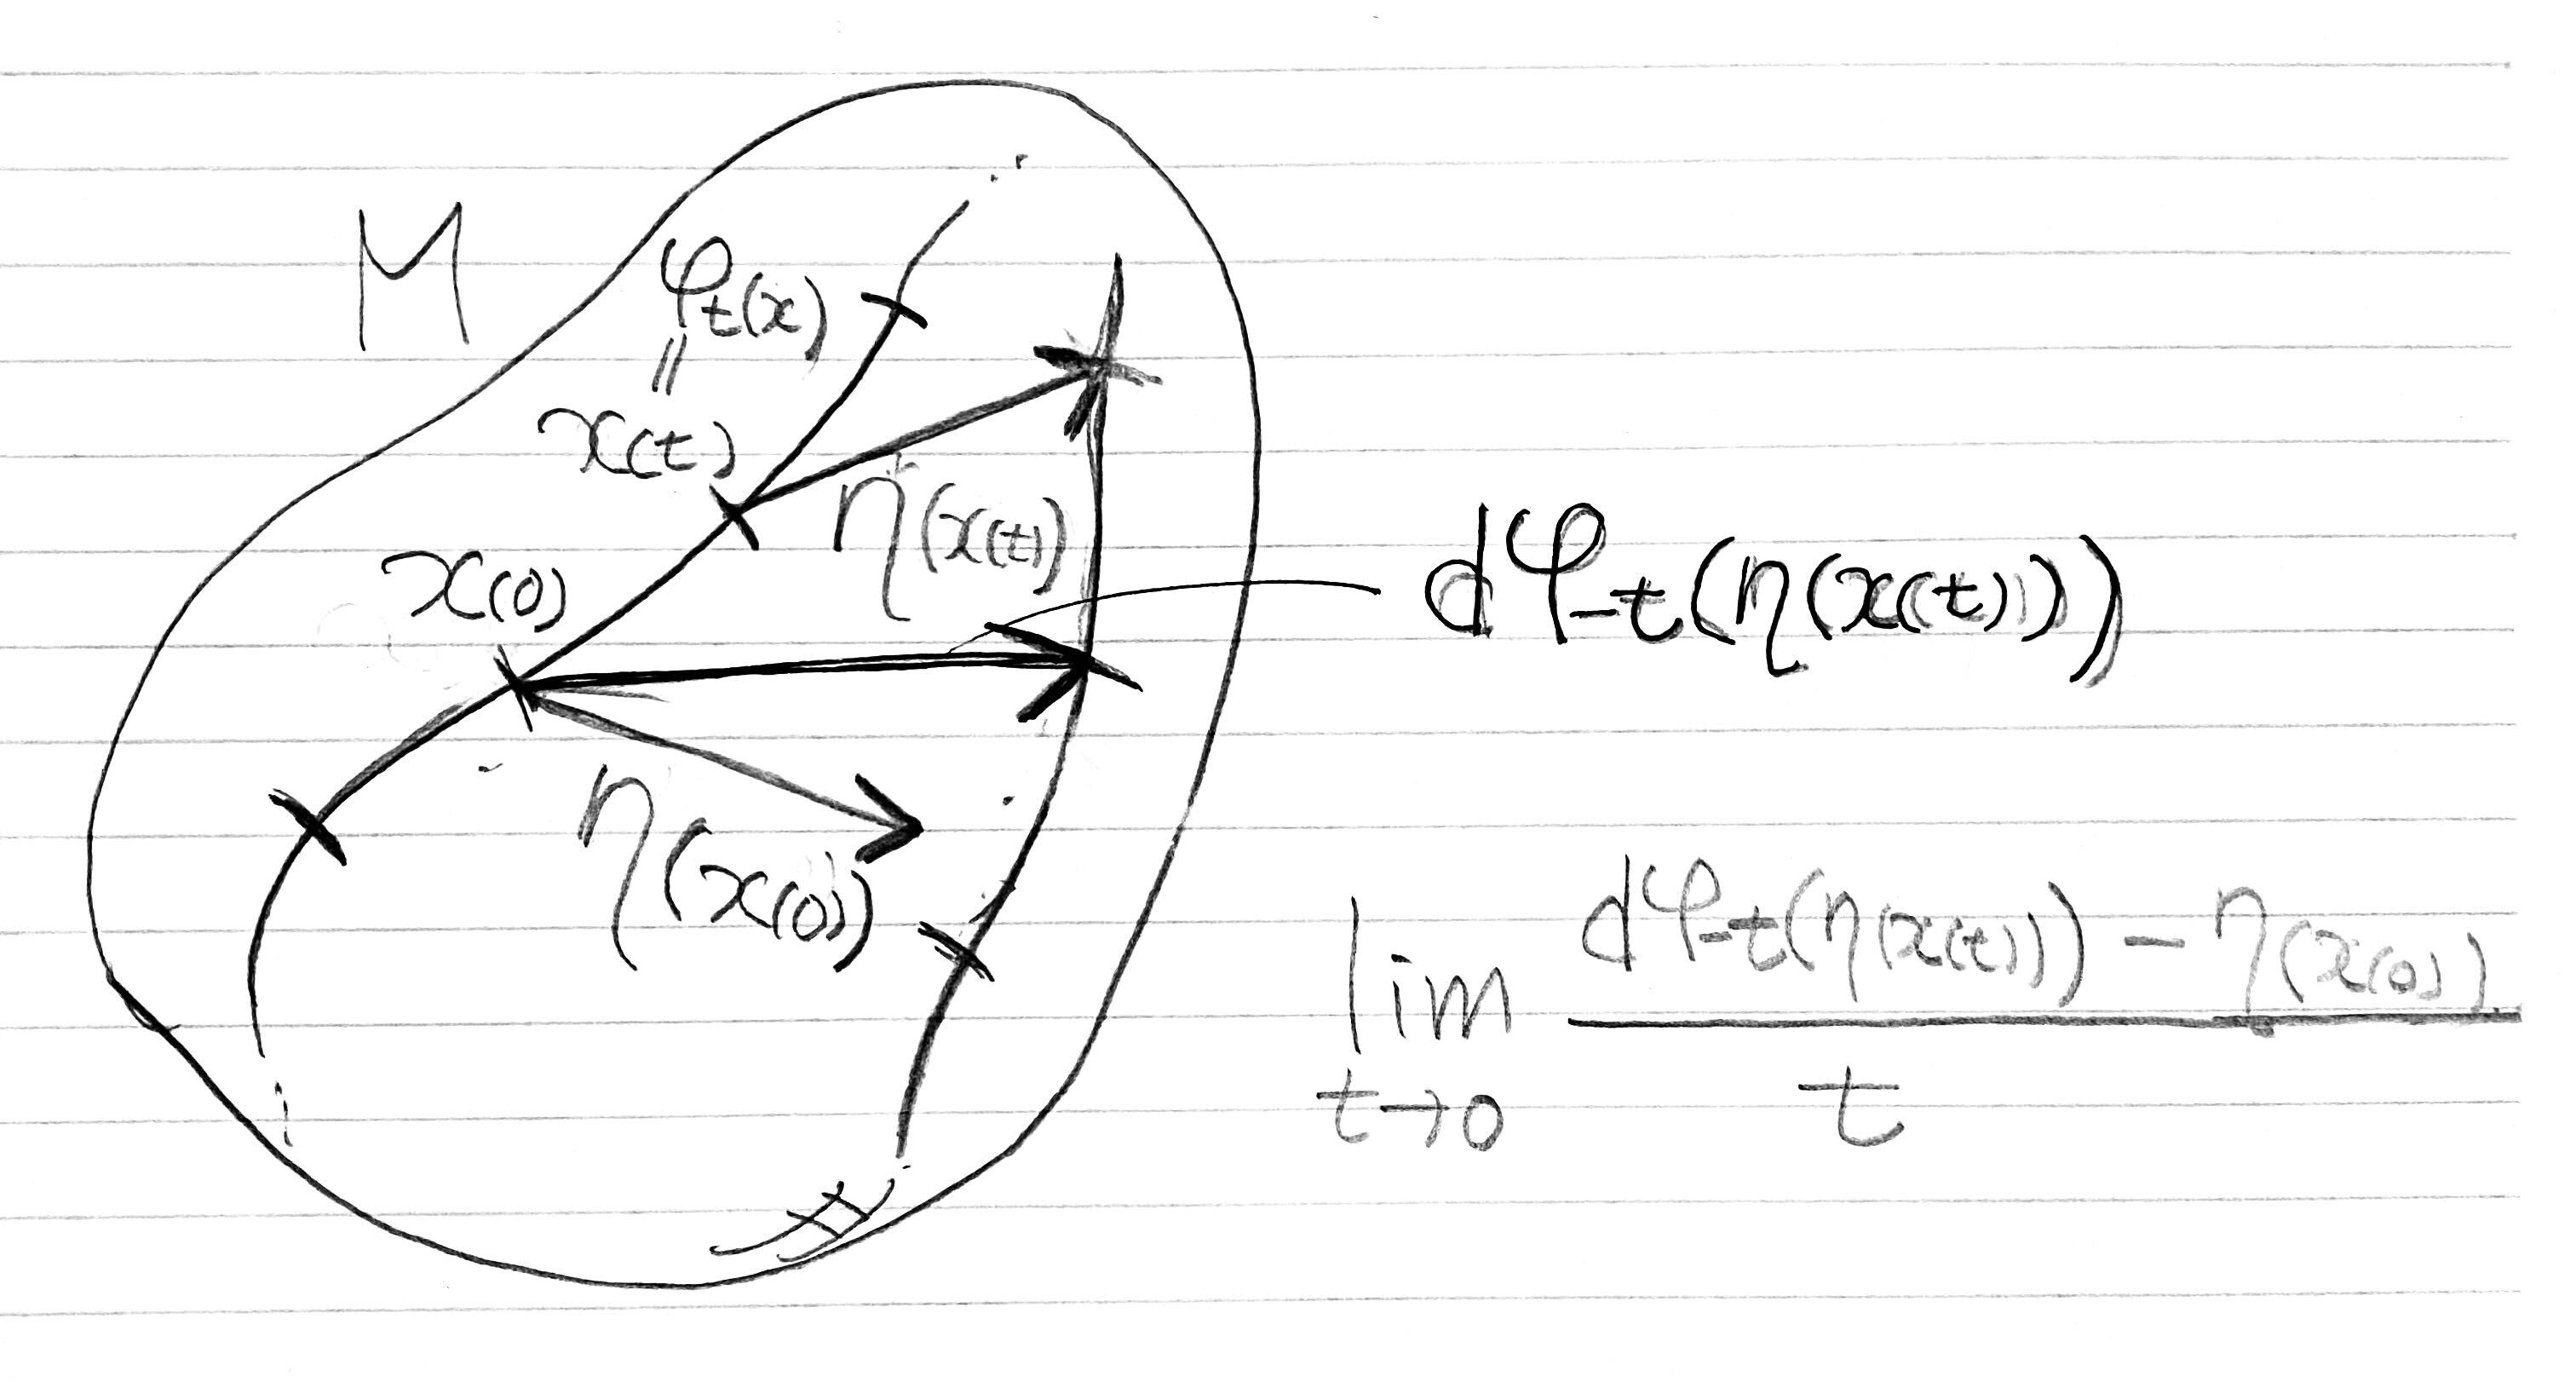 M
φt(x)
||
x(t)
η(x(t))
x(0)
dφ-t(η(x(t)))
η(x(0))
lim t→0 dφ-t(η(x(t))) - η(x(0)) / t